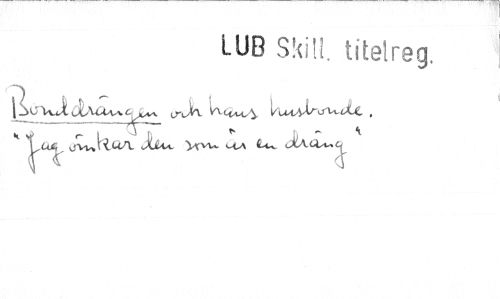 LUB Skill. titelreg.
Bonddrängen och hans husbonde.
"Jag ömkar den som är en dräng"